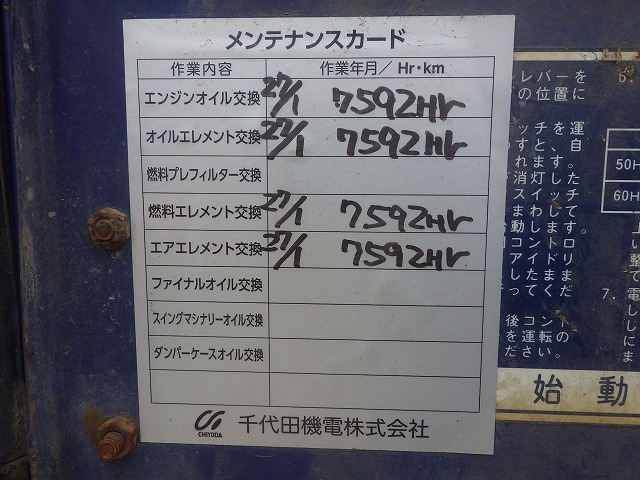 メンテナンスカード
作業内容 作業年月/Hr・km
エンジンオイル交換 27/1 7592Hr
オイルエレメント交換 27/1 7592Hr
燃料プレフィルター交換
燃料エレメント交換 27/1 7592Hr
エアエレメント交換 27/1 7592Hr
ファイナルオイル交換
スイングマシナリーオイル交換
ダンパーケースオイル交換
CHIYODA 千代田機電株式会社
レバーを
の位置に
ッチを運
すと、自
れます。
消灯した
スイッチ
まわして
動します。
コントロ
アイドリ
したまま
ってくだ
後コント
を運転の
ださい。
始動
6.
50H
60H
7.電